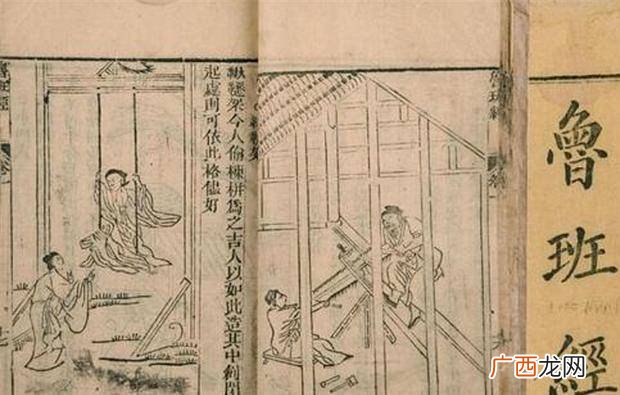 魯班經
魯班經
鞦韆架今人偷棟栟爲之吉人以如此造其中
起處則可依此格儘好
魯班經
广西龙网